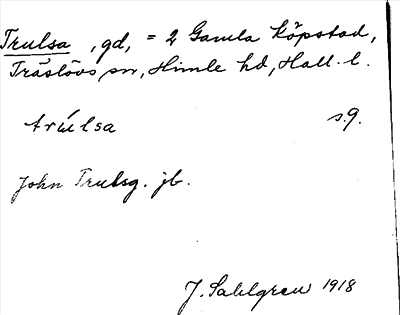 Trulsa, gd, = 2 Gamla Köpstad,
Träslövs sn, Himle hd, Hall. l.
trúlsa s.9.
John Trulsg. jb.
J. Sahlgren 1918